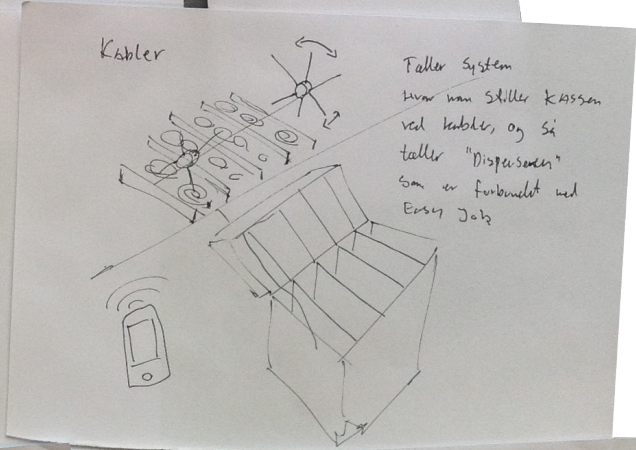 Kabler
Tæller System
Hvor man Stiller Kassen
ved kabler, og så
tæller "Dispenseren"
som er forbundet med
Easy Job